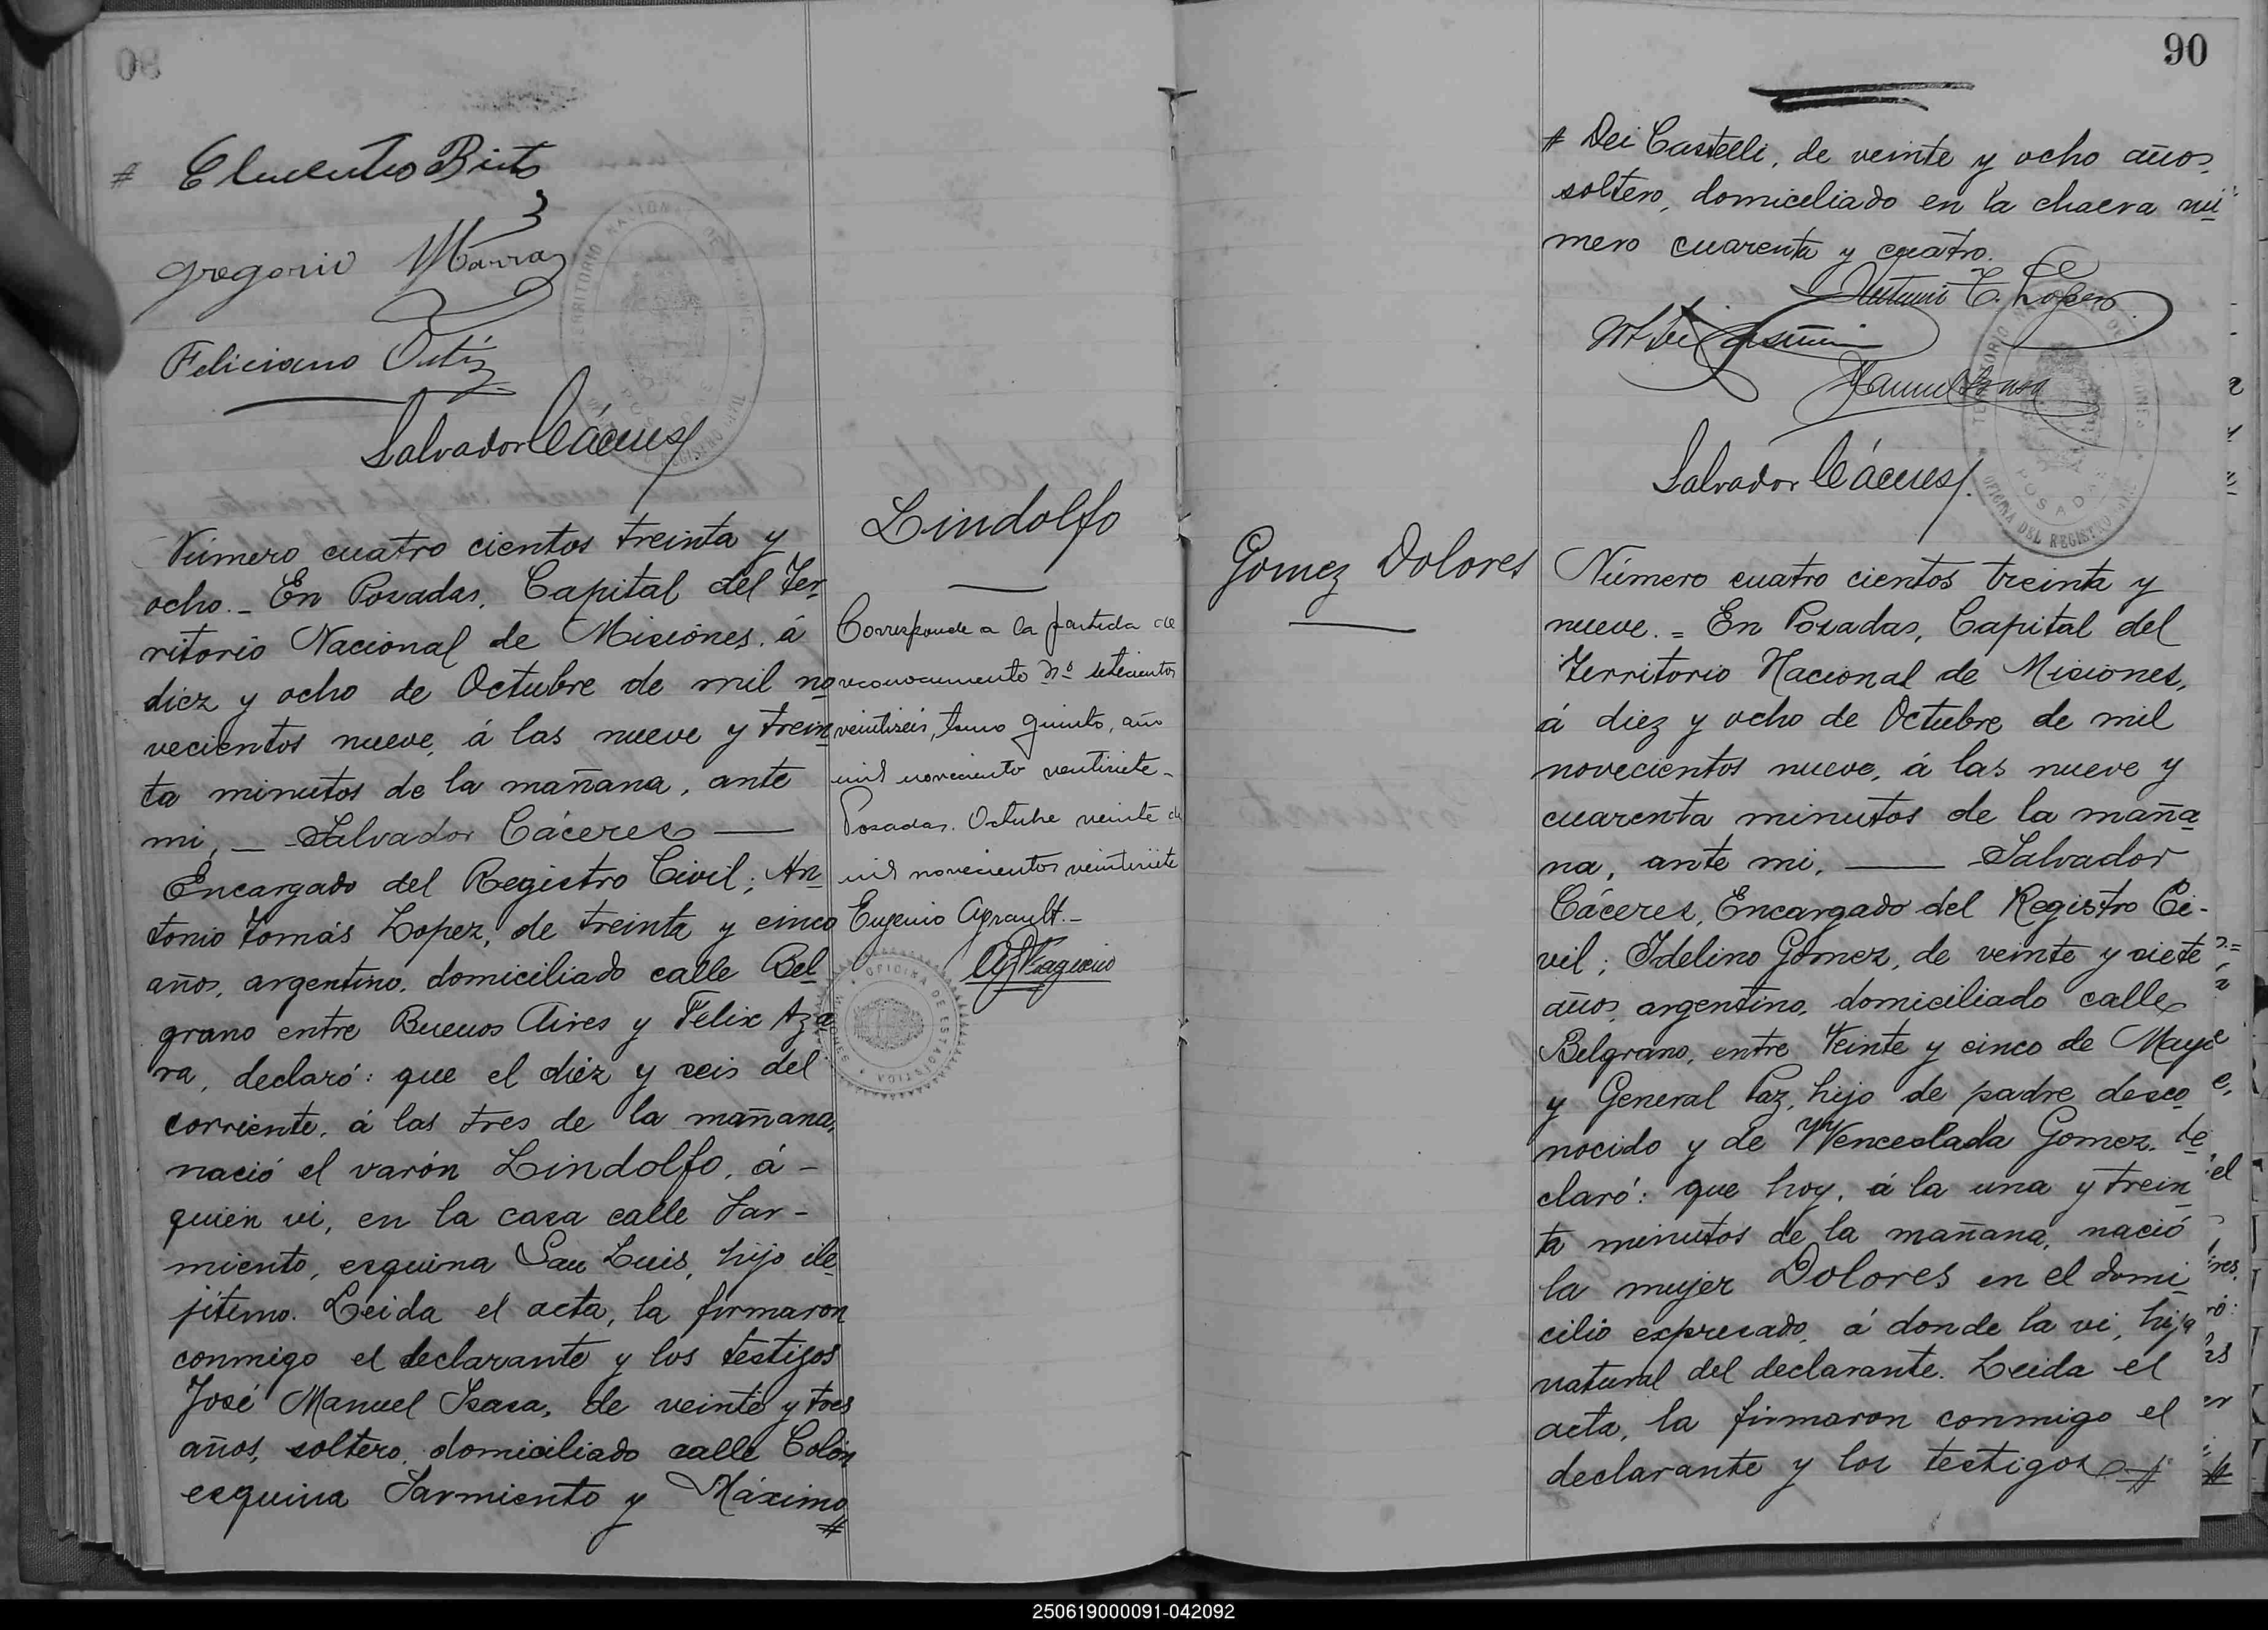 # Clemente Brito
Gregorio Marra
Feliciano Ortiz
Salvador Cáceres
Número cuatro cientos treinta y
ocho. - En Posadas, Capital del Ter
ritorio Nacional de Misiones, á
diez y ocho de Octubre de mil no
vecientos nueve, á las nueve y trein
ta minutos de la mañana, ante
mi, - Salvador Cáceres —
Encargado del Registro Civil; An
tonio Tomás Lopez, de treinta y cinco
años, argentino, domiciliado calle Bel
grano entre Buenos Aires y Felix Aza
ra, declaró: que el diez y seis del
corriente, á las tres de la mañana,
nació el varón Lindolfo, á -
quien vi, en la casa calle Sar-
miento, esquina San Luis, hijo ile
jitimo. Leida el acta, la firmaron
conmigo el declarante y los testigos
José Manuel Isasa, de veinte y tres
años, soltero, domiciliado calle Colón
esquina Sarmiento y Máximo
#
Lindolfo
Corresponde a la partida de
reconocimiento Nº setecientos
veintiseis, tomo quinto, año
mil novecientos veintisiete -
Posadas. Octubre veinte de
mil novecientos veintisiete
Eugenio
OFICINA DE ESTADISTICA
MISIONES
90
# Dei Castelli, de veinte y ocho años,
soltero, domiciliado en la chacra nú
mero cuarenta y cuatro.
Antonio T. Lopez
Salvador Cáceres
TERRITORIO NACIONAL DE MISIONES
OFICINA DEL REGISTRO CIVIL
POSADAS
Gomez Dolores
Número cuatro cientos treinta y
nueve. = En Posadas, Capital del
Territorio Nacional de Misiones,
á diez y ocho de Octubre de mil
novecientos nueve, á las nueve y
cuarenta minutos de la maña
na, ante mi, — Salvador
Cáceres, Encargado del Registro Ci-
vil; Idelino Gomez, de veinte y siete
años, argentino, domiciliado calle
Belgrano, entre Veinte y cinco de Mayo
y General Paz, hijo de padre desco
nocido y de Wenceslada Gomez, de
claró: que hoy, á la una y trein
ta minutos de la mañana, nació
la mujer Dolores en el domi
cilio expresado, á donde la vi, hija
natural del declarante. Leida el
acta, la firmaron conmigo el
declarante y los testigos #
250619000091-042092